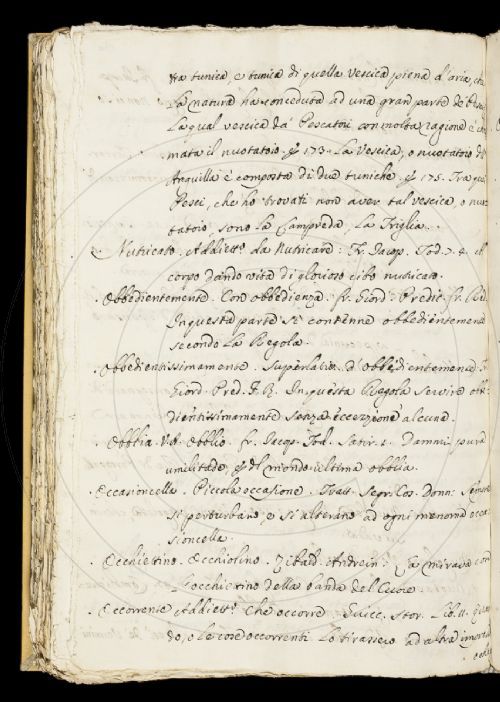 tra tunica, e tunica di quella Vescica piena d'aria, che
La natura ha conceduta ad una gran parte de' Pesci
La qual vescica da' Pescatori con molta ragione è
mata il nuotatoio. 173. La Vescica, o nuotatoio dell'
Anguilla è composta di due tuniche. 175. Tra quei
Pesci, che ho trovati non aver tal vescica, o nuo
tatoio, sono La Lampreda, La Triglia.
Nutricato. Addiett.º da Nutricare: Fr. Iacop. Tod. 7. 4. il
corpo dando vita di glorioso cibo nutricato.
Obbedientemente. Con obbedienza. fr. Giord. Predic. fr. R.
In questa parte si contenne obbedientemente
secondo La Regola.
Obbedientissimamente. Superlativ. d'obbedientemente.
Giord. Pred. F. R. In questa Regola servire obb
dientissimamente senza eccezzione alcuna.
Obblia. Ved. Obblio. fr. Jacop. Tod. Satir. 1. Dammi pura
umilitade, del mondo ultima obblia.
Occasioncella. Piccola occasione. Tratt. Segr. Cos. Donn. Femine
si perturbano, e si alterano ad ogni menoma occa
sioncella.
Occhiettino. Occhiolino. Zibald. Andrein. La mirava con
L'occhiettino della banda del Cuore
Occorrente Addiett.º Che occorre. Guicc. Stor. Lib. 11.
do, e le cose occorrenti Lo tirassero ad altra